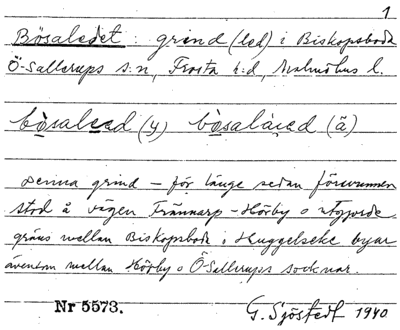 1
Bösaledet: grind (led) i Biskopsboda
Ö-Sallerups s:n, Frosta h:d, Malmöhus l.
(y) (ä)
Denna grind – för länge sedan försvunnen
stod å vägen Trännarp – Hörby o utgjorde
gräns mellan Biskopsboda i Huggelseke byar
ävensom mellan Hörby o Ö-Sallerups socknar.
Nr 5573. G. Sjöstedt 1940